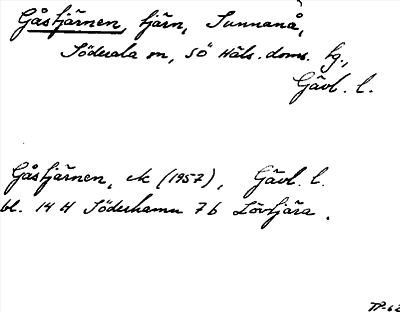 Gåstjärnen, tjärn, Sunnanå,
Söderala sn, SÖ Häls. doms. tg.,
Gävl. l.
Gåstjärnen, ek (1957), Gävl. l.
bl. 14 H Söderhamn 7 b Lövtjära.